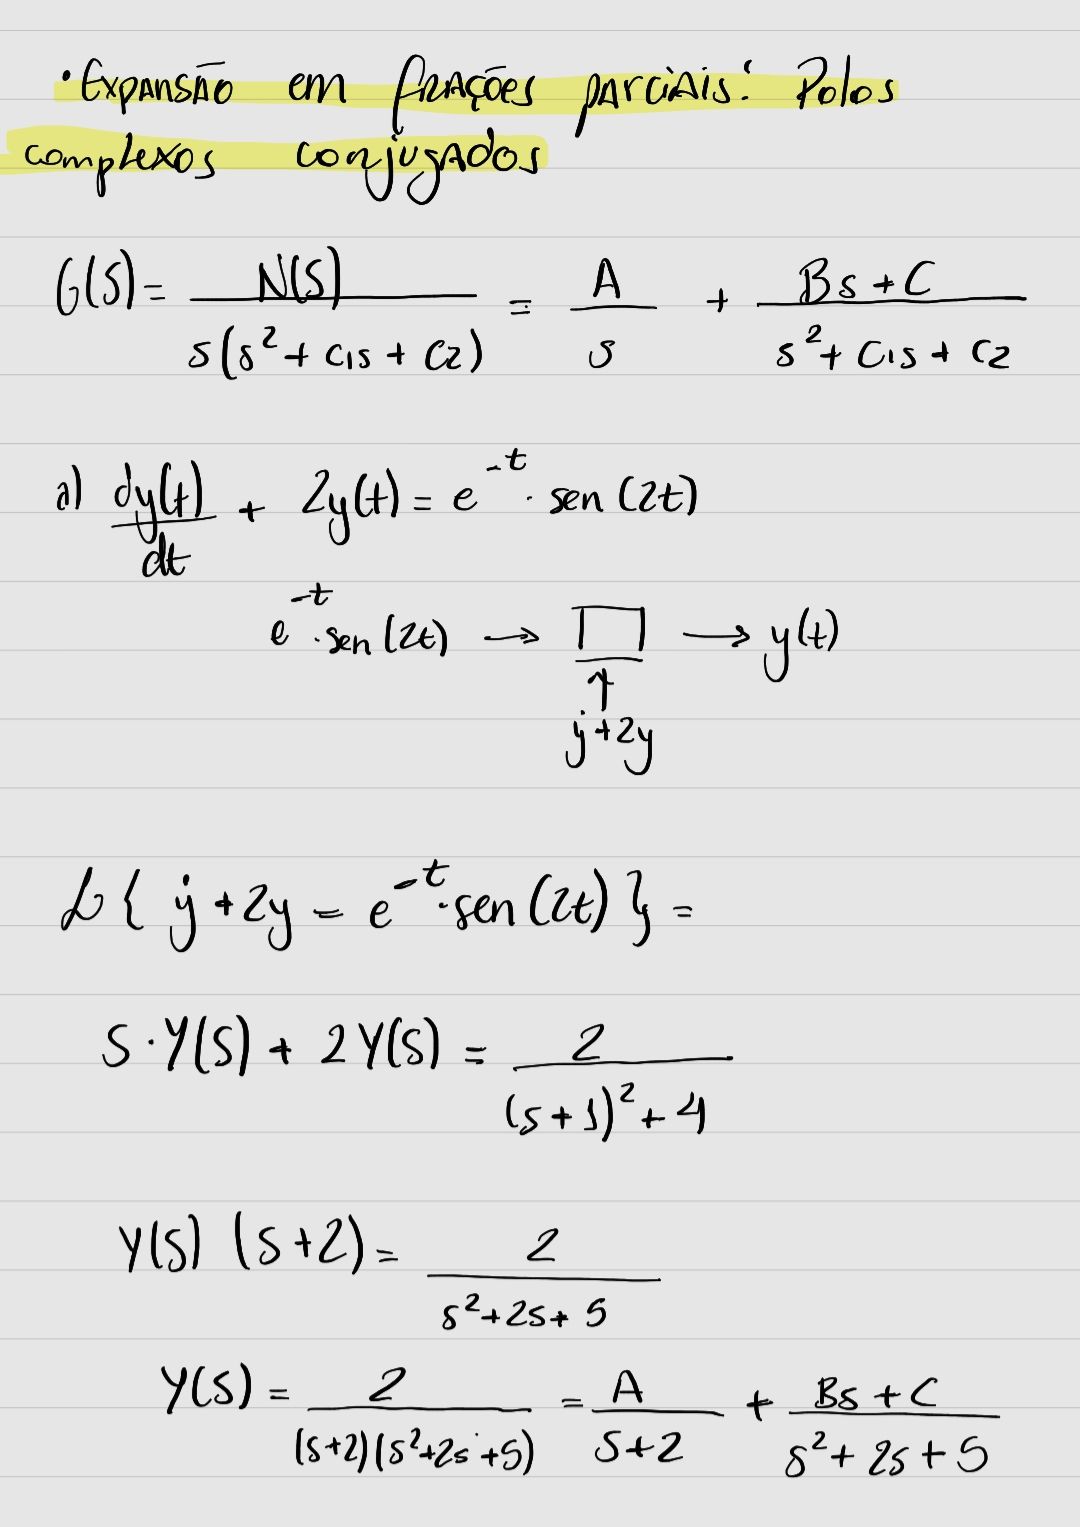 • Expansão em frações parciais: Polos
complexos conjugados
G(s) = N(s) / s(s² + c1s + c2) = A / s + Bs + C / s² + c1s + c2
a) dy(t)/dt + 2y(t) = e^-t · sen (2t)
e^-t · sen (2t) → □ → y(t)
↑
ẏ + 2y
ℒ { ẏ + 2y = e^-t · sen (2t) } =
S · Y(s) + 2 Y(s) = 2 / (s + 1)² + 4
Y(s) (s + 2) = 2 / s² + 2s + 5
Y(s) = 2 / (s+2)(s²+2s+5) = A / s+2 + Bs + C / s² + 2s + 5